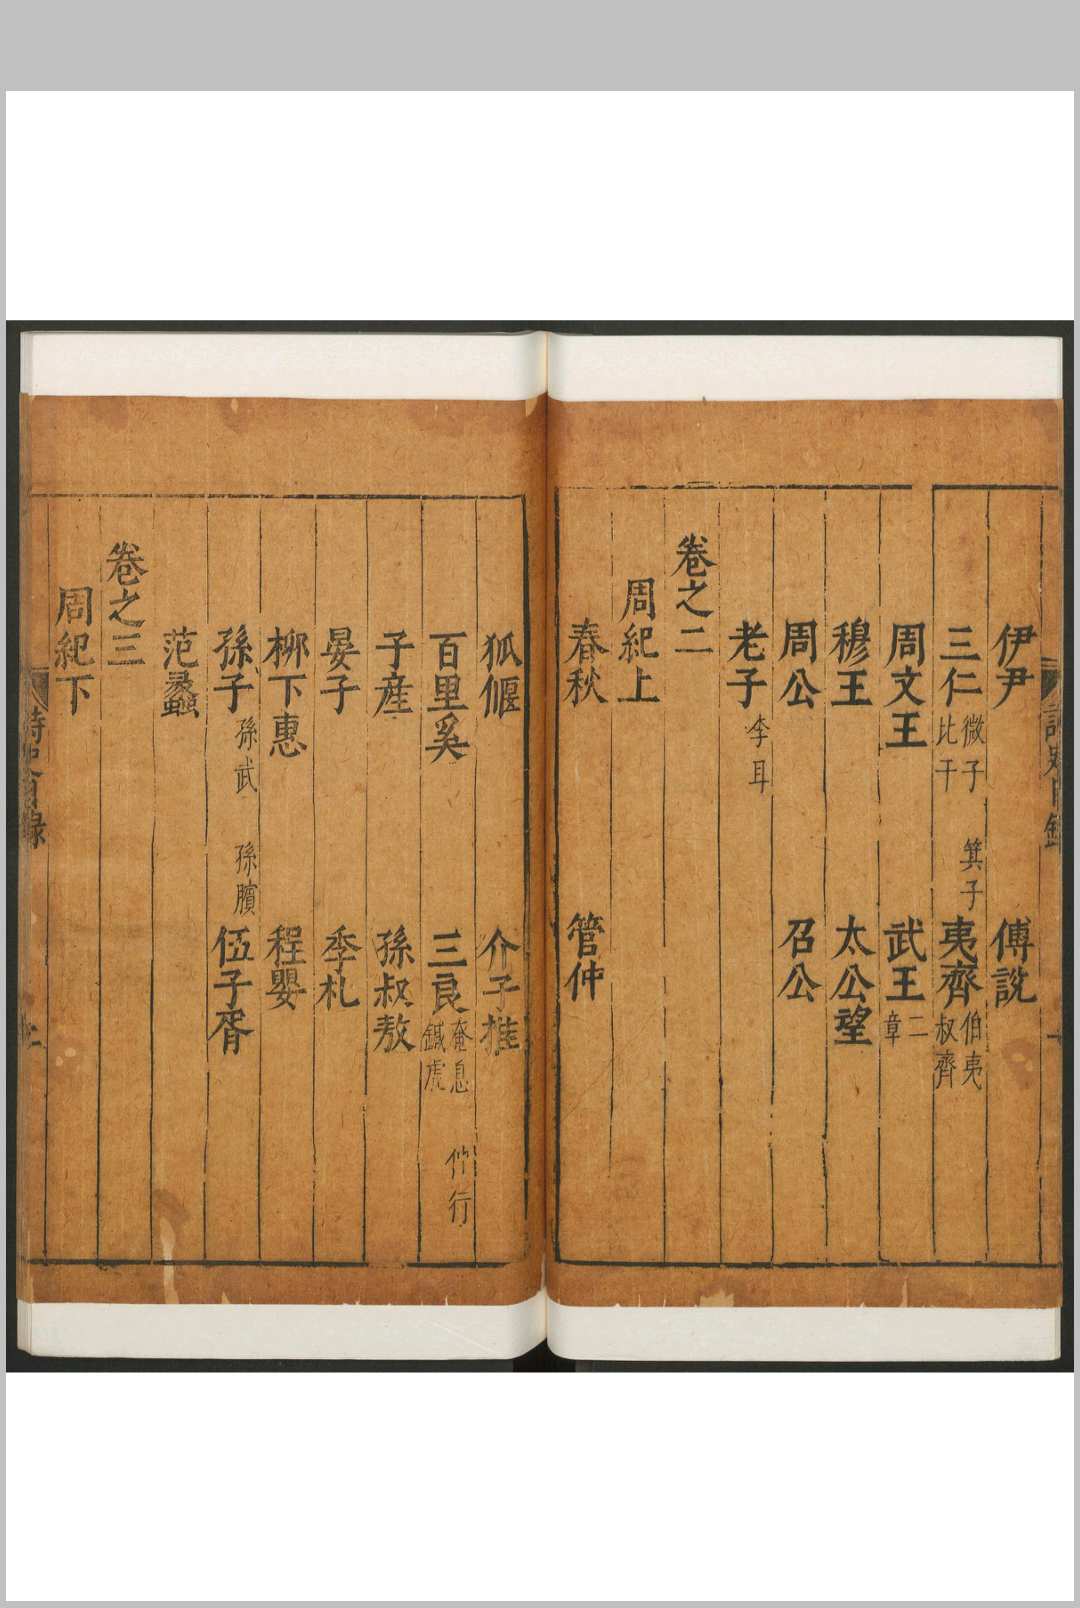 伊尹 傅說
三仁 微子 箕子 比干 夷齊 伯夷 叔齊
周文王 武王 二章
穆王 太公望
周公 召公
老子 李耳
卷之二
周紀上
春秋 管仲
狐偃 介子推
百里奚 三良 奄息 仲行 鍼虎
子產 孫叔敖
晏子 季札
柳下惠 程嬰
孫子 孫武 孫臏 伍子胥
范蠡
卷之三
周紀下